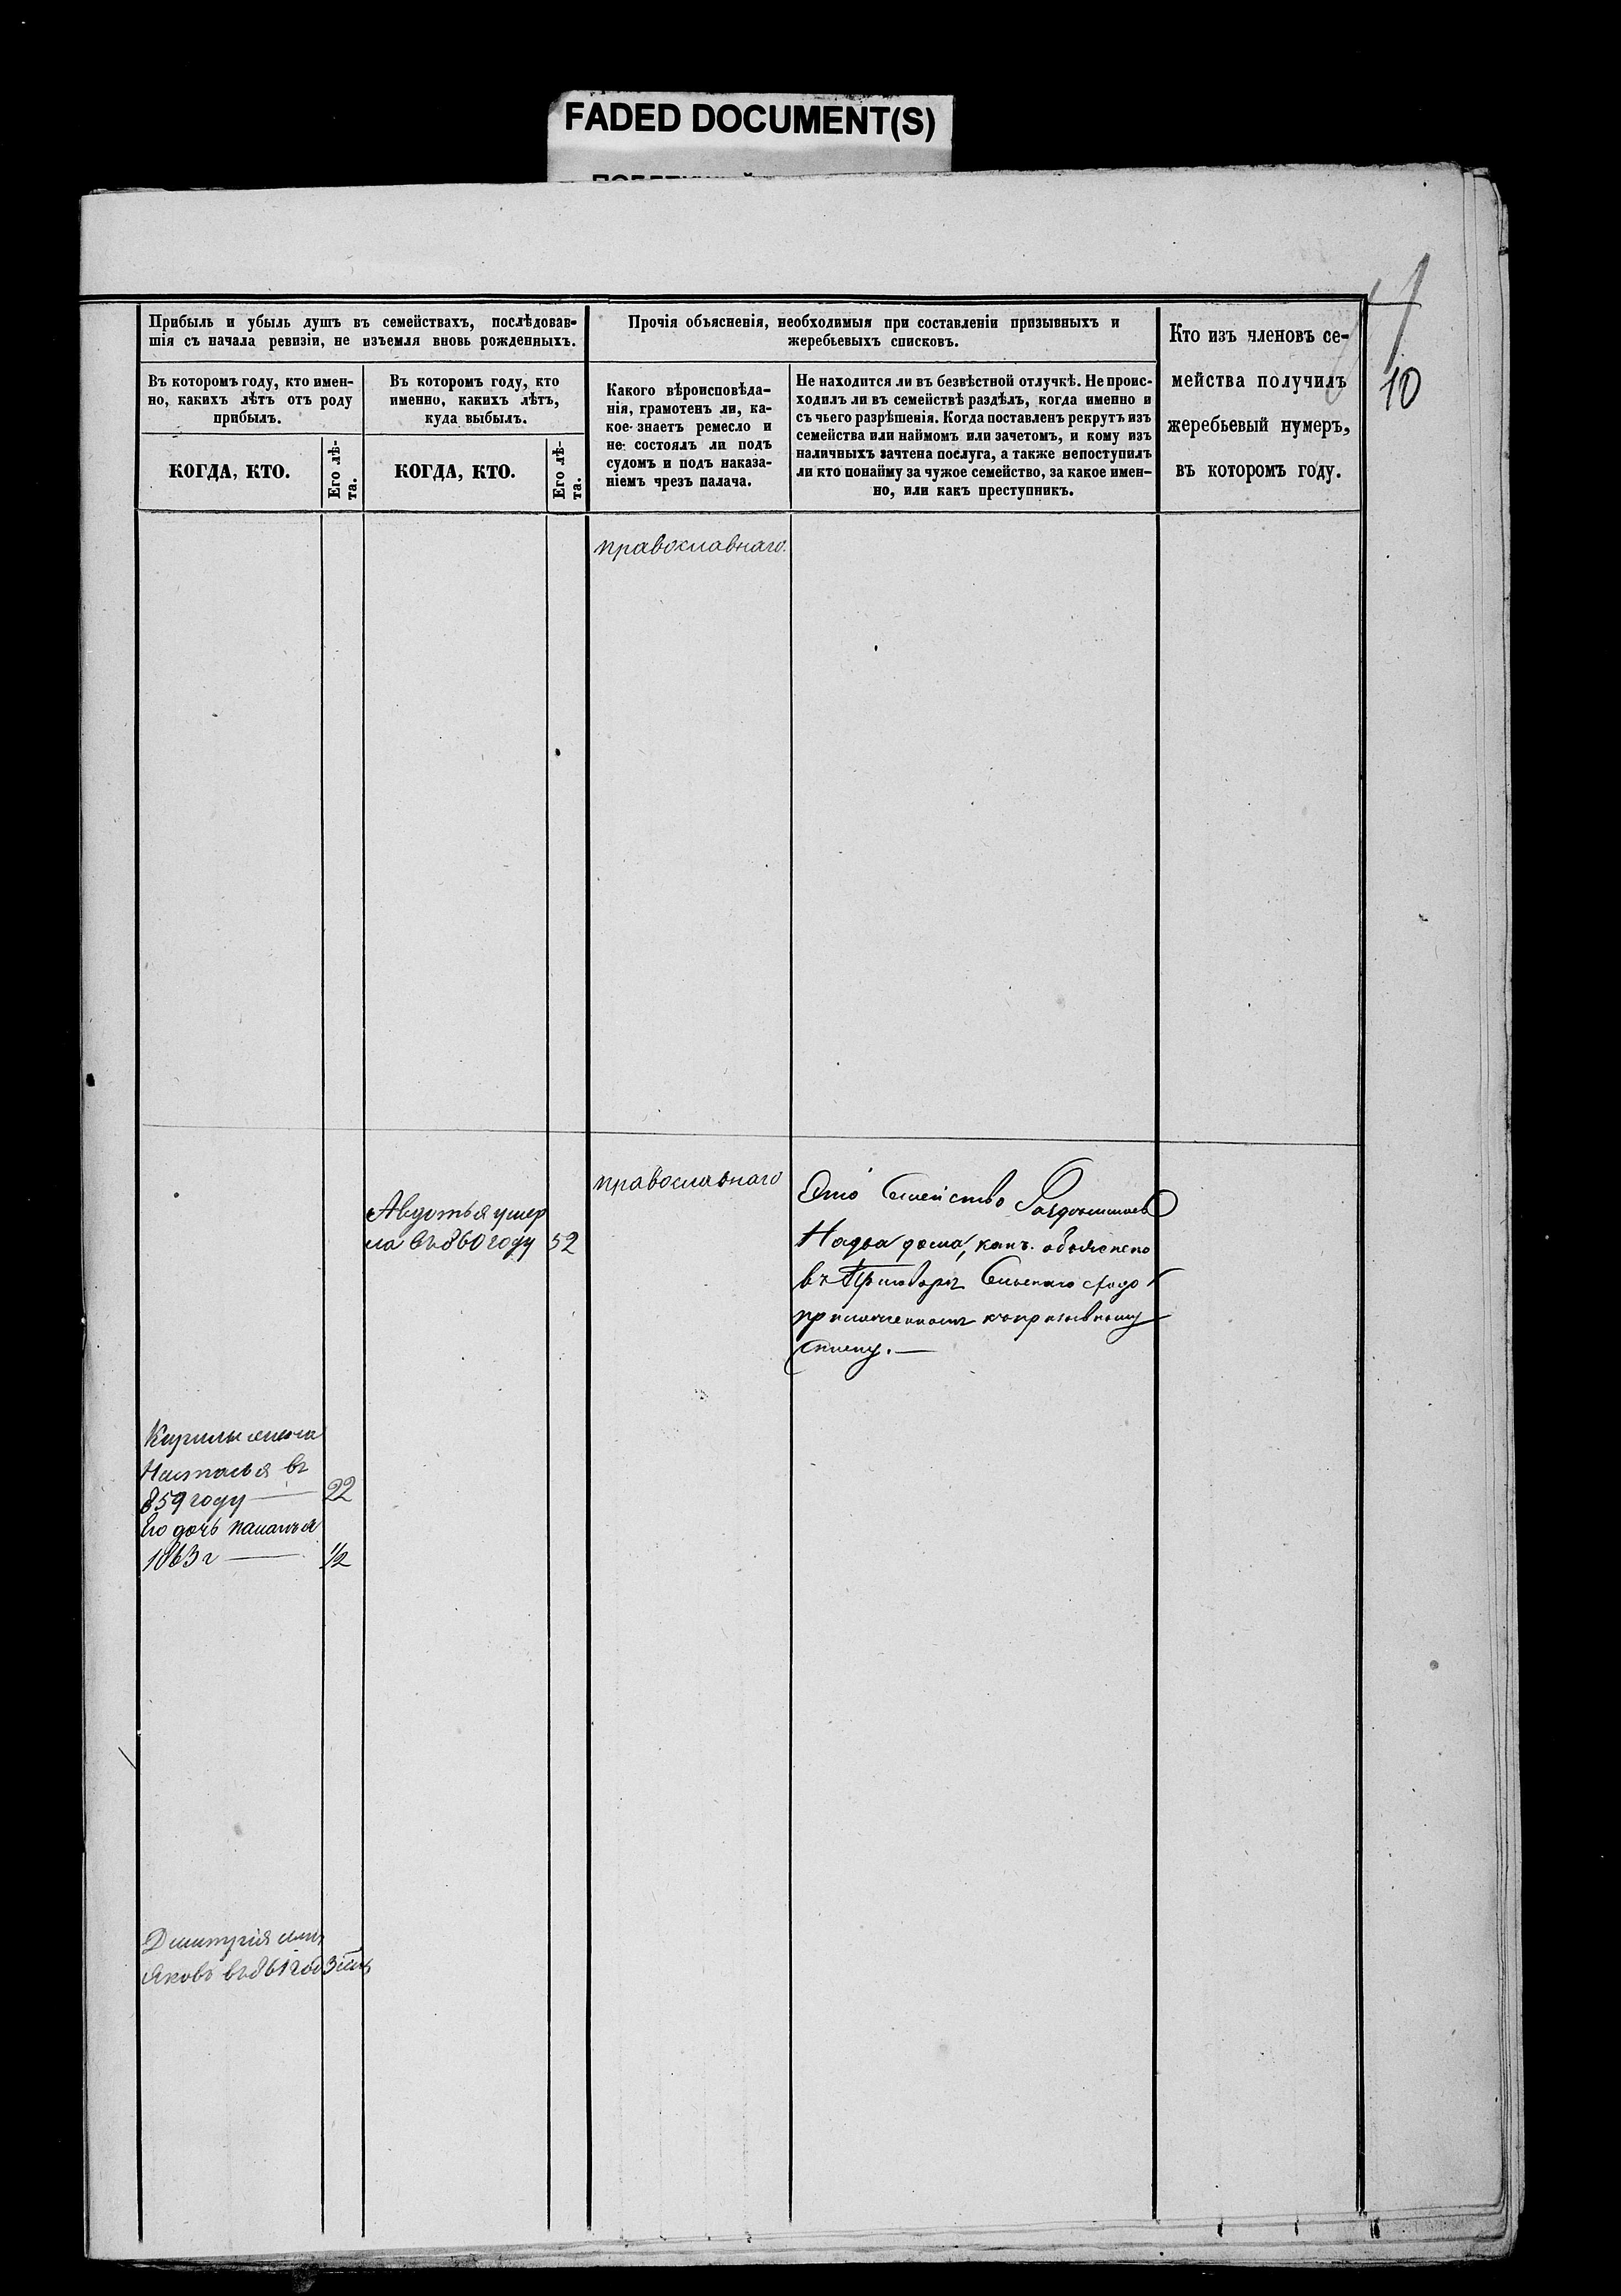 FADED DOCUMENT(S)
10
Прибыль и убыль душъ въ семействахъ, послѣдовав-
шія съ начала ревизіи, не изъемля вновь рожденныхъ.
Прочія объясненія, необходимыя при составленіи призывныхъ и
жеребьевыхъ списковъ.
Кто изъ членовъ се-
мейства получилъ
жеребьевый нумеръ,
въ которомъ году.
Въ которомъ году, кто имен-
но, какихъ лѣтъ отъ роду
прибылъ.
Въ которомъ году, кто
именно, какихъ лѣтъ,
куда выбылъ.
Какого вѣроисповѣда-
нія, грамотенъ ли, ка-
кое знаетъ ремесло и
не состоялъ ли подъ
судомъ и подъ наказа-
ніемъ чрезъ палача.
Не находится ли въ безвѣстной отлучкѣ. Не проис-
ходилъ ли въ семействѣ раздѣлъ, когда именно и
съ чьего разрѣшенія. Когда поставленъ рекрутъ изъ
семейства или наймомъ или зачетомъ, и кому изъ
наличныхъ зачтена послуга, а также непоступилъ
ли кто понайму за чужое семейство, за какое имен-
но, или какъ преступникъ.
КОГДА, КТО.
Его лѣ-
та.
КОГДА, КТО.
Его лѣ-
та.
православнаго.
православнаго
Авдотья умер
ла въ 860 году 52
Это Семейство
На два дома, какъ. объяснено
въ Приговорѣ Сельскаго схода
приложенномъ къ призывному
списку. —
Кирилы жена
Наталья въ
859 году — 22
Его дочь
1863 г — 1/2
Дмитрія сынъ
Яковъ въ 861 год 3